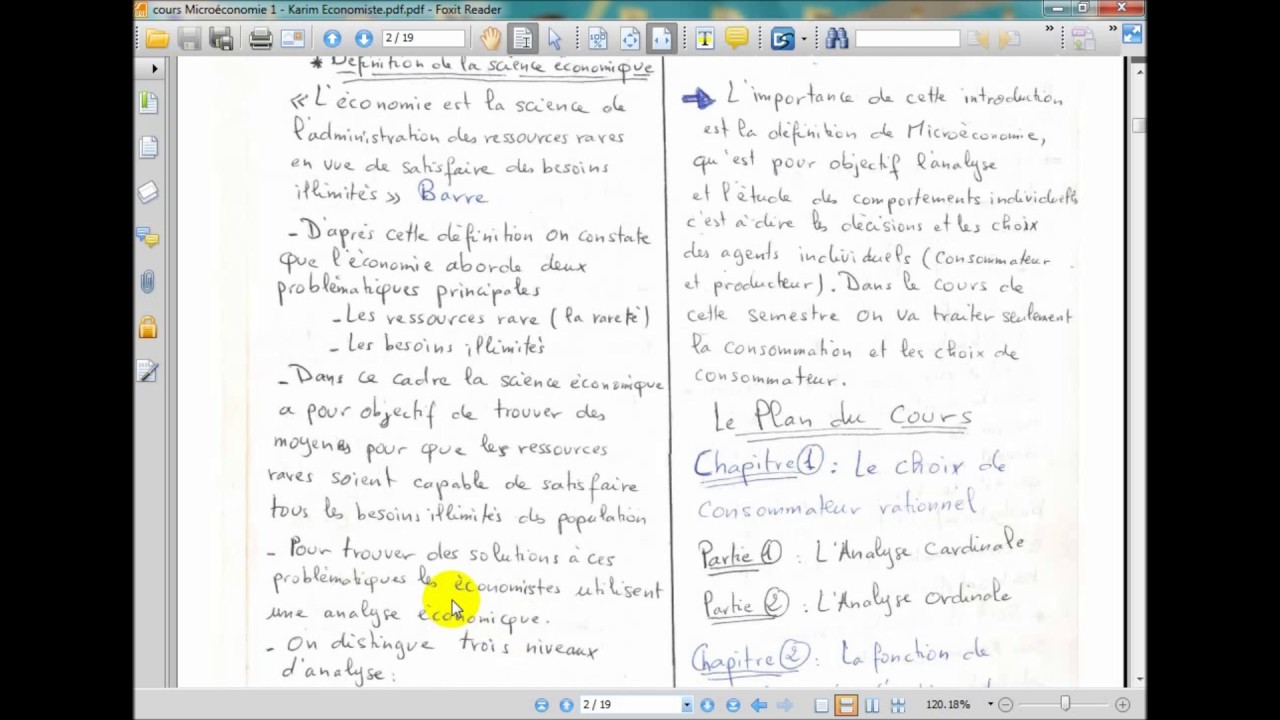 cours Microéconomie 1 - Karim Economiste.pdf.pdf - Foxit Reader
2 / 19
* Définition de la science économique
« L'économie est la science de
l'administration des ressources rares
en vue de satisfaire des besoins
illimités » Barre
- D'après cette définition on constate
que l'économie aborde deux
problématiques principales
- Les ressources rare ( la rareté )
- Les besoins illimités
- Dans ce cadre la science économique
a pour objectif de trouver des
moyens pour que les ressources
rares soient capable de satisfaire
tous les besoins illimités des population
- Pour trouver des solutions à ces
problématiques les économistes utilisent
une analyse économique.
- On distingue trois niveaux
d'analyse :
L'importance de cette introduction
est la définition de Microéconomie,
qu'est pour objectif l'analyse
et l'étude des comportements individuels
c'est à dire les décisions et les choix
des agents individuels ( consommateur
et producteur ). Dans le cours de
cette semestre on va traiter seulement
la consommation et les choix de
consommateur.
Le Plan du Cours
Chapitre 1 : Le choix de
consommateur rationnel
Partie 1 : L'Analyse Cardinale
Partie 2 : L'Analyse ordinale
Chapitre 2 : La fonction de
2 / 19
120.18%